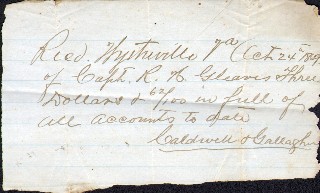 Recd. Wytheville Va Oct 24th
of Capt. R. H. Gleaves Three
Dollars & 62/100 in full of
all accounts to date
Caldwell & Gallagher